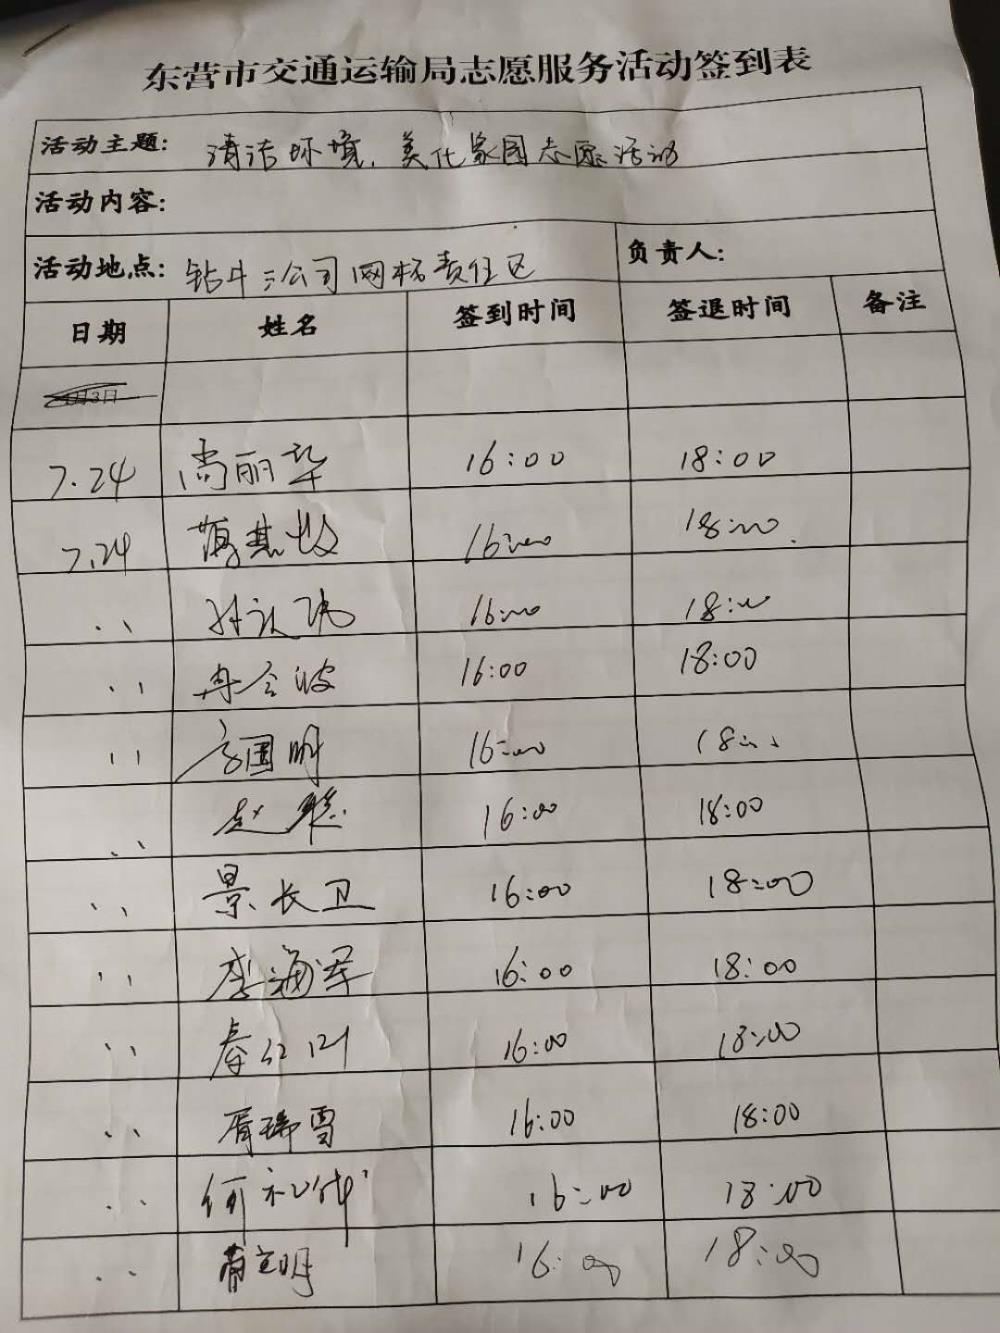 东营市交通运输局志愿服务活动签到表
活动主题: 清洁环境、美化家园志愿活动
活动内容:
活动地点: 钻井三公司网格责任区 负责人:
日期 姓名 签到时间 签退时间 备注
月3日
7.24 尚丽华 16:00 18:00
7.24 16:00 18:00
〃 16:00 18:00
〃 16:00 18:00
〃 高国明 16:00 18:00
〃 赵 16:00 18:00
〃 景长卫 16:00 18:00
〃 李海军 16:00 18:00
〃 秦红 16:00 18:00
〃 胥瑞雪 16:00 18:00
〃 何 16:00 18:00
〃 明 16:00 18:00